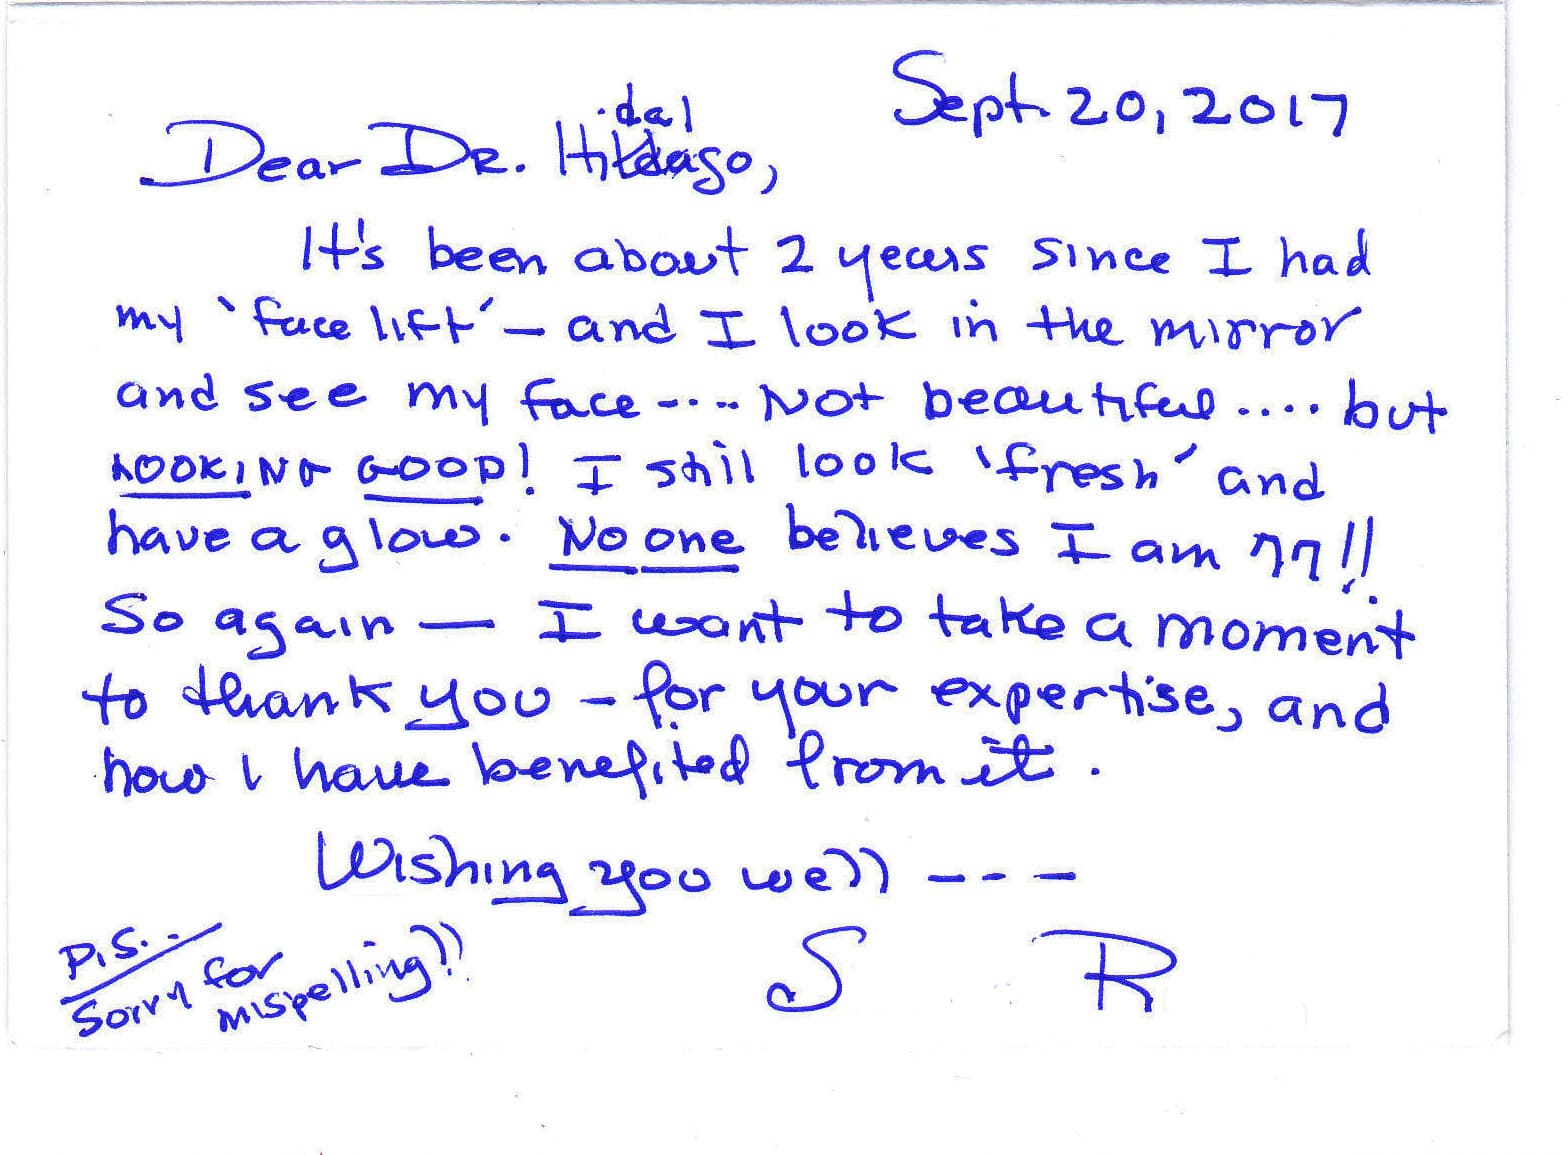 Sept. 20, 2017
dal
Dear Dr. Hildago,
It's been about 2 years since I had
my 'face lift' – and I look in the mirror
and see my face .... Not beautiful .... but
LOOKING GOOD! I still look 'fresh' and
have a glow. No one believes I am 77!!
So again — I want to take a moment
to thank you – for your expertise, and
how I have benefited from it.
Wishing you well – – –
S R
P.S.
Sorry for
mispelling!!